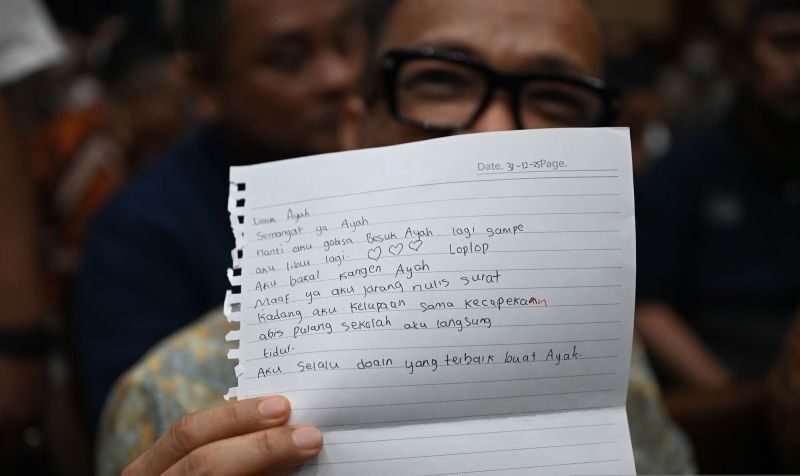 Date. 31-12-25 Page.
Untuk Ayah
Semangat ya Ayah
nanti aku gabisa Besuk Ayah lagi sampe
aku libur lagi ♡ ♡ ♡ Loplop
Aku bakal kangen Ayah
Maaf ya aku jarang nulis surat
Kadang aku kelupaan sama kecapekaan
abis pulang sekolah aku langsung
tidur.
Aku selalu doain yang terbaik buat Ayah.